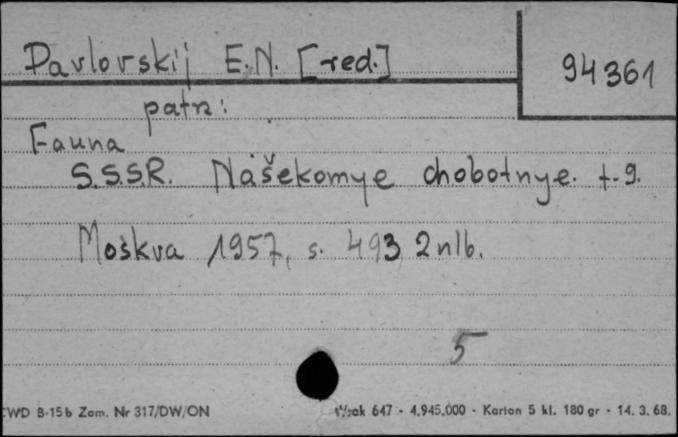 Pavlovskij E.N. [red.]
94361
patrz:
Fauna
S.S.S.R. Našekomye chobotnye. t-9.
Moskva 1957, s. 493, 2 nlb.
5
CWD B-15b Zam. Nr 317/DW/ON
Wzak 647 - 4.945.000 - Karton 5 kl. 180 gr - 14. 3. 68.